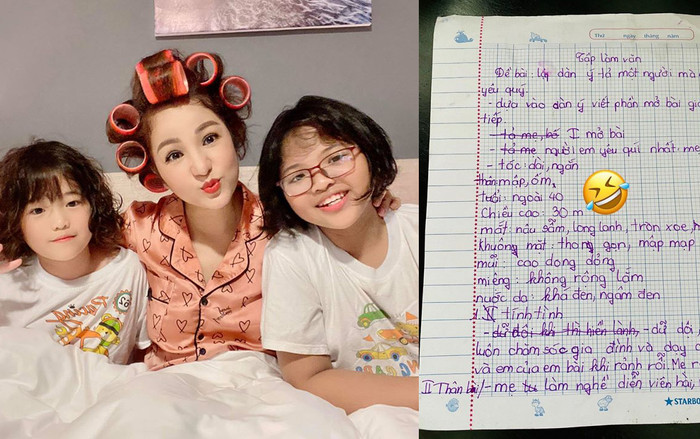 Thứ ngày tháng năm
Tấp làm văn
Đề bài: lập dàn ý tả một người mà
yêu quý.
- dựa vào dàn ý viết phần mở bài gi
tiếp.
- tả mẹ, bố I mở bài
- tả mẹ người em yêu quí nhất: mẹ
- tóc: dài, ngắn
thân: mập, ốm,
tuổi: ngoài 40
Chiều cao: 30 m
mắt: nâu sẫm, long lanh, tròn xoe,
khuông mặt: thon gọn, mập mạp
mũi: cao dong dỏng
miệng: không rộng lắm
nước da: khá đen, ngâm đen
II tính tình
- dữ đôi khi thì hiền lành, - dữ dó
luôn chăm sóc gia đình và dạy
và em của em bài khi rảnh rỗi. Mẹ r
II Thân bài/ - mẹ làm nghề diễn viên hài,
STARBO